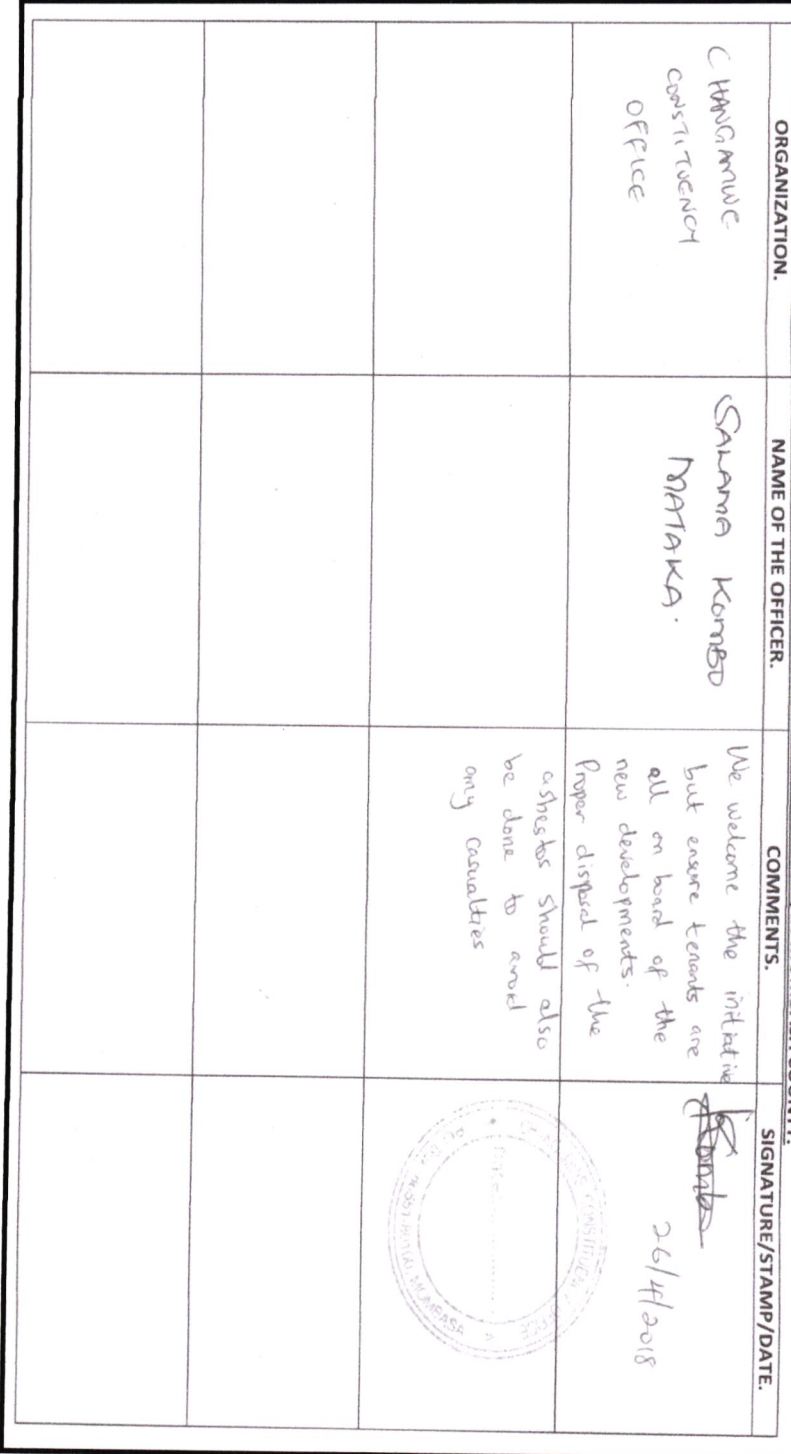 COUNTY.
ORGANIZATION.
NAME OF THE OFFICER.
COMMENTS.
SIGNATURE/STAMP/DATE.
CHANGAMWE
CONSTITUENCY
OFFICE
SALAMA KOMBO
MATAKA.
We welcome the initiative
but ensure tenants are
all on board of the
new developments.
Proper disposal of the
asbestos should also
be done to avoid
any casualties
26/4/2018
CONSTITUENCY
MOMBASA